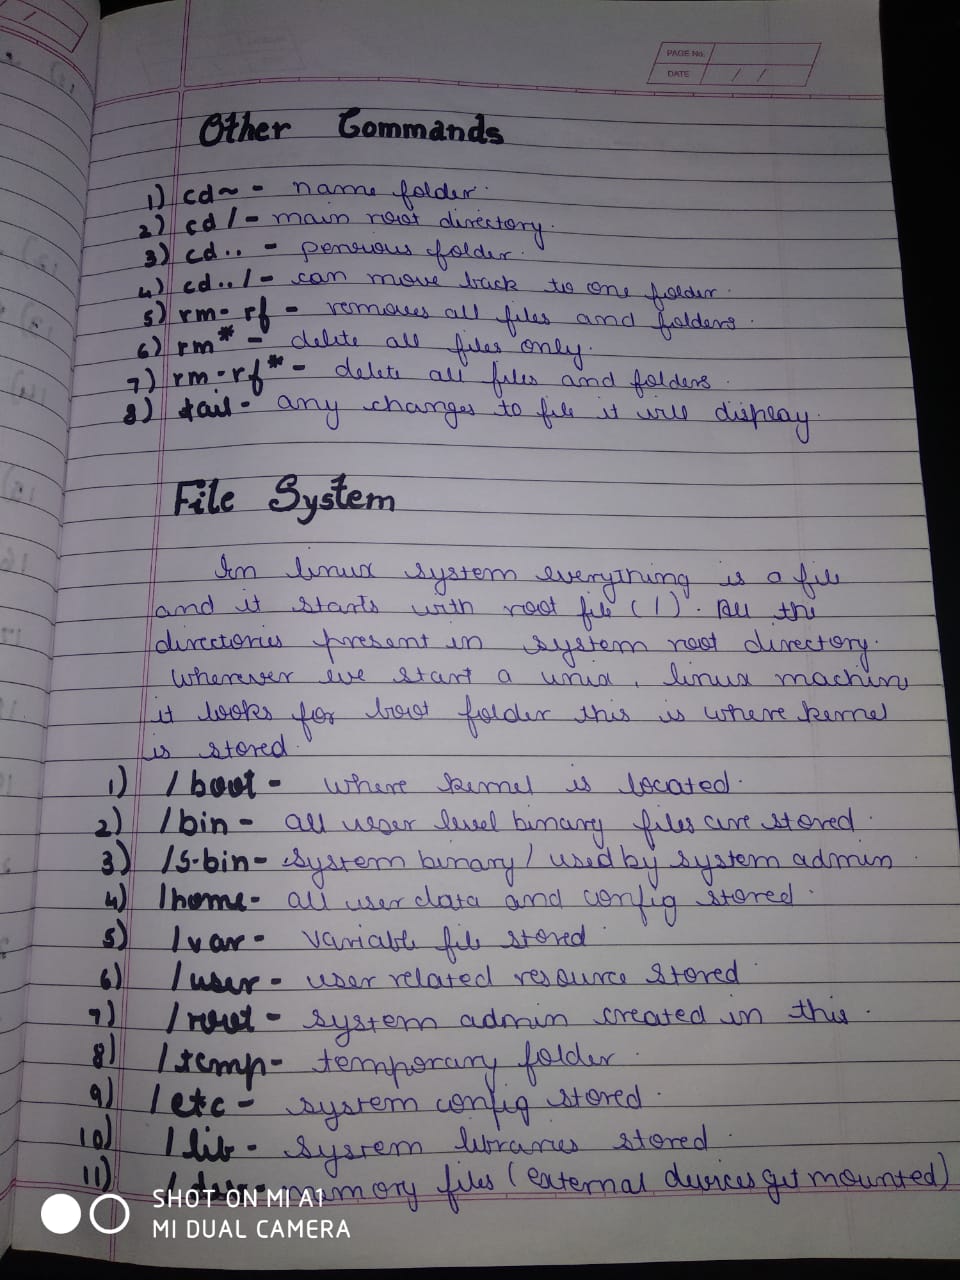 PAGE No.
DATE / /
Other Commands
1) cd~ - name folder.
2) cd / - main root directory.
3) cd.. - penvious folder.
4) cd../ - can move back to one folder.
5) rm-rf - removes all files and folders.
6) rm* - delete all files only.
7) rm-rf* - delete all files and folders.
8) tail - any changes to file it will display.
File System
In linux system everything is a file
and it starts with root file (/). All the
directories present in system root directory.
Wherever we start a unix, linux machine
it looks for boot folder this is where kernel
is stored.
1) /boot - where kernel is located.
2) /bin - all user level binary files are stored.
3) /s-bin - system binary / used by system admin
4) /home - all user data and config stored.
5) /var - variable file stored.
6) /user - user related resource stored.
7) /root - system admin created in this.
8) /temp - temporary folder.
9) /etc - system config stored.
10) /lib - system libraries stored.
11) - memory files (external devices get mounted)
SHOT ON MI A1
MI DUAL CAMERA